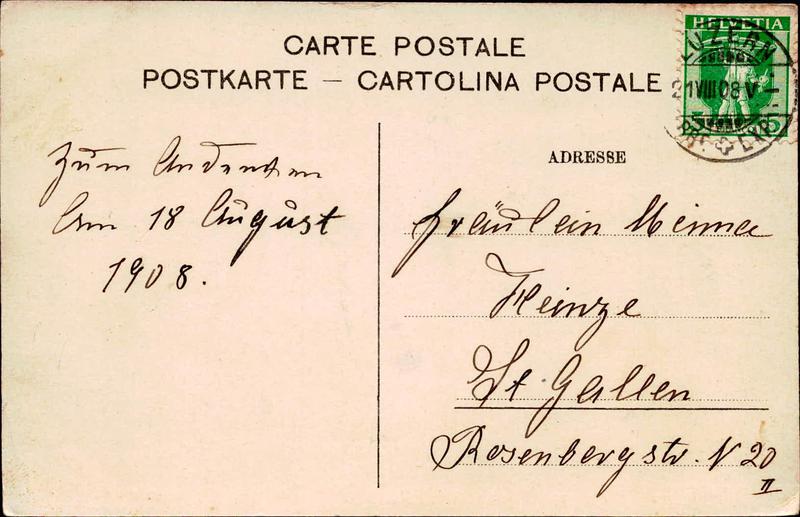 CARTE POSTALE
POSTKARTE – CARTOLINA POSTALE
HELVETIA
LUZERN
21 VIII 08 V
5
EXP.
ADRESSE
Zum Andenken
Am 18 August
1908.
Fräulein Minna
Heinze
St Gallen
Rosenbergstr. N 20
II